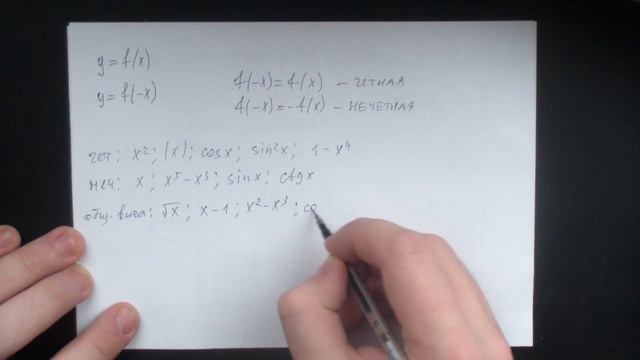 y = f(x)
y = f(-x)
f(-x) = f(x) - четная
f(-x) = -f(x) - нечетная
чет: x²; |x|; cosx; sin²x; 1-x⁴
неч: x; x⁵-x³; sinx; ctgx
общ. вида: √x; x-1; x²-x³; co